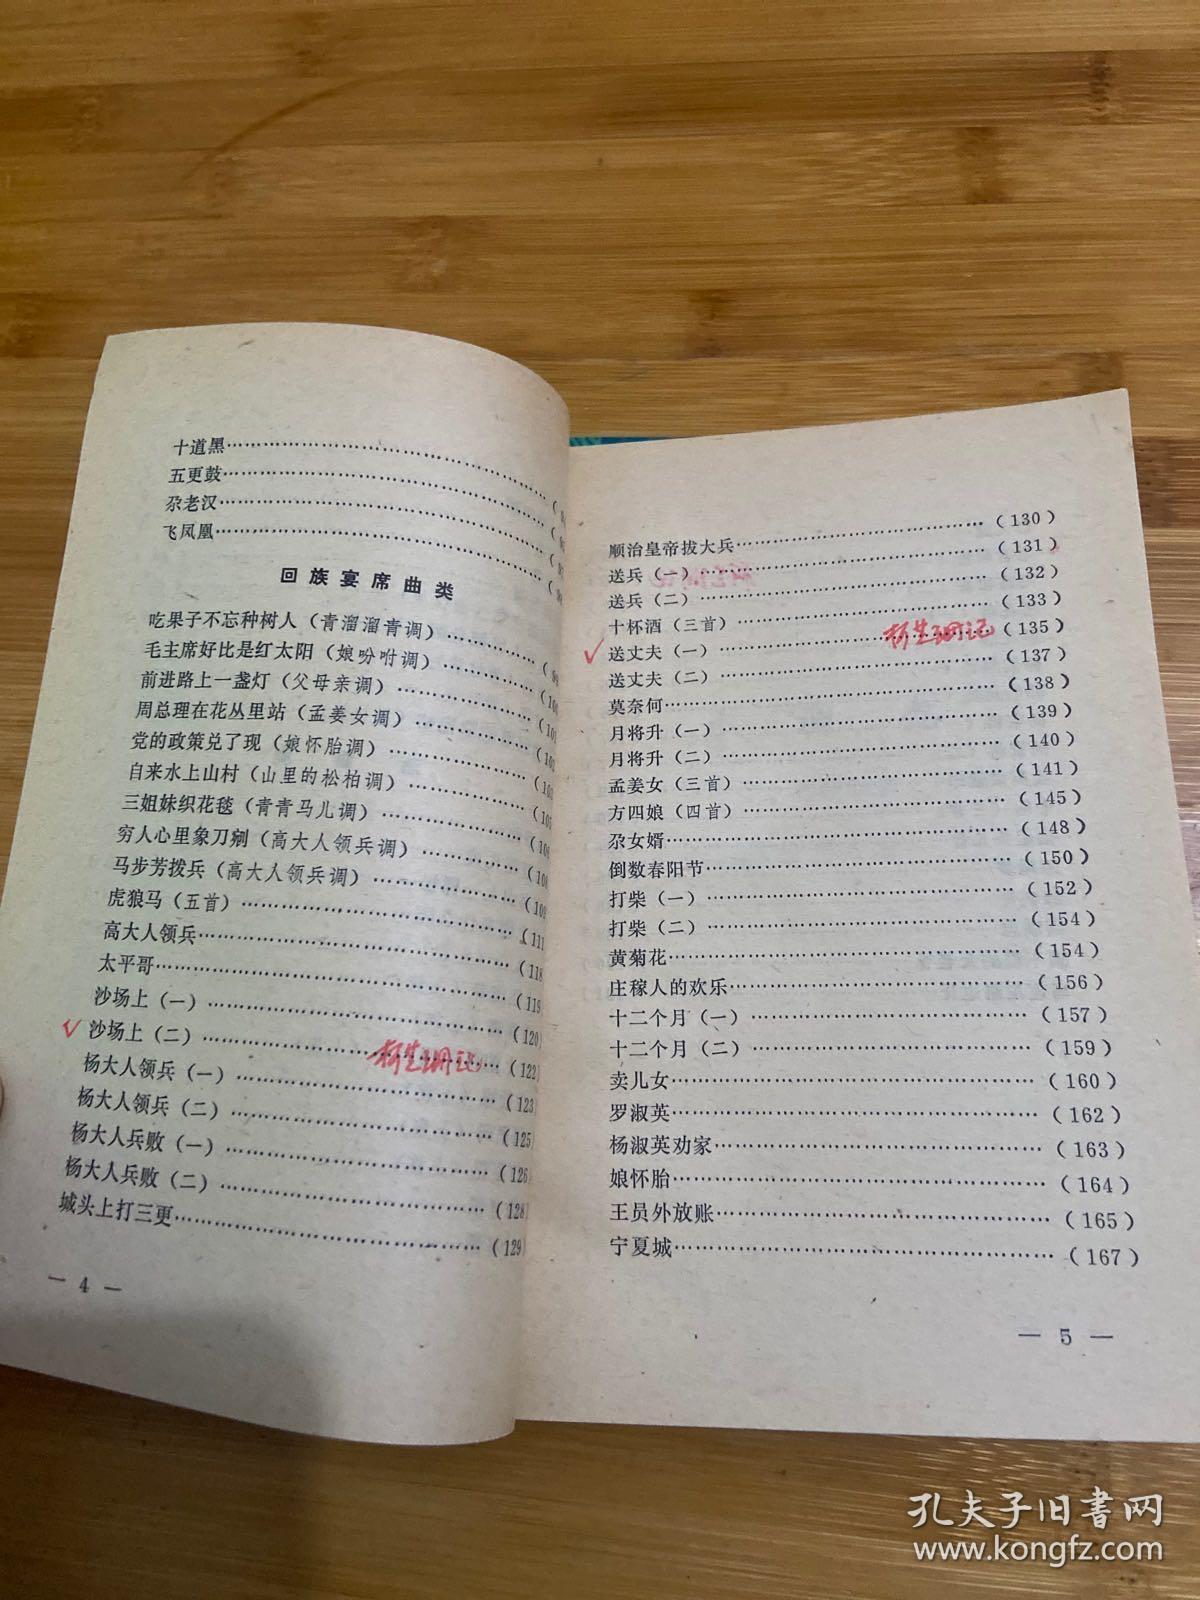 十道黑
五更鼓
尕老汉
飞凤凰
回族宴席曲类
吃果子不忘种树人（青溜溜青调）
毛主席好比是红太阳（娘吩咐调）
前进路上一盏灯（父母亲调）
周总理在花丛里站（孟姜女调）
党的政策兑了现（娘怀胎调）
自来水上山村（山里的松柏调）
三姐妹织花毯（青青马儿调）
穷人心里象刀剜（高大人领兵调）
马步芳拨兵（高大人领兵调）
虎狼马（五首）…………（111
高大人领兵…………（118
太平哥…………（119
沙场上（一）…………（120）
沙场上（二）…………（122）
杨大人领兵（一）…………（123）
杨大人领兵（二）…………（125）
杨大人兵败（一）…………（126）
杨大人兵败（二）…………（128）
城头上打三更…………（129）
— 4 —
顺治皇帝拔大兵…………（130）
送兵（一）…………（131）
送兵（二）…………（132）
十杯酒（三首）…………（133）
送丈夫（一）…………（135）
送丈夫（二）…………（137）
莫奈何…………（138）
月将升（一）…………（139）
月将升（二）…………（140）
孟姜女（三首）…………（141）
方四娘（四首）…………（145）
尕女婿…………（148）
倒数春阳节…………（150）
打柴（一）…………（152）
打柴（二）…………（154）
黄菊花…………（154）
庄稼人的欢乐…………（156）
十二个月（一）…………（157）
十二个月（二）…………（159）
卖儿女…………（160）
罗淑英…………（162）
杨淑英劝家…………（163）
娘怀胎…………（164）
王员外放账…………（165）
宁夏城…………（167）
— 5 —
孔夫子旧书网
www.kongfz.com